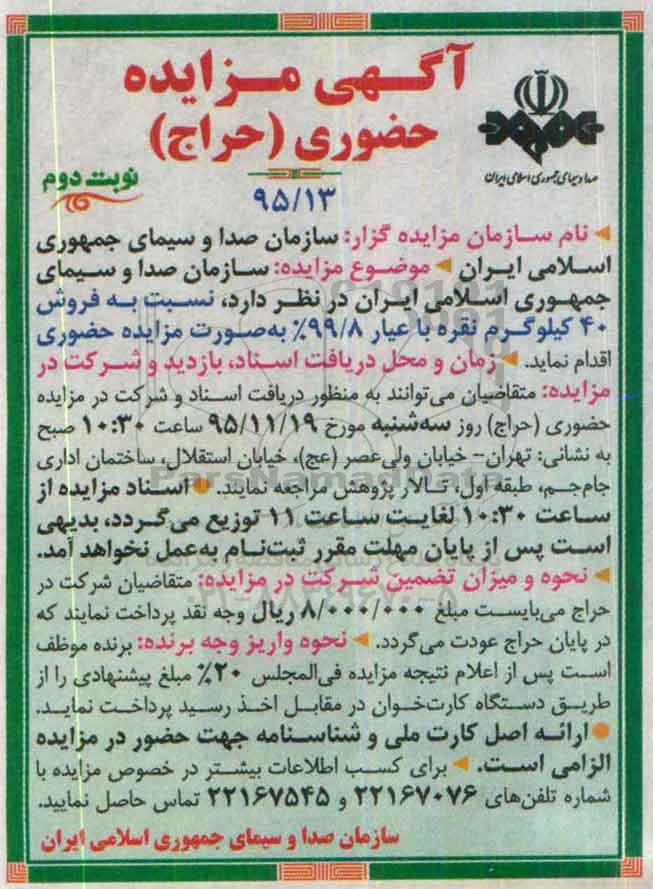 آگهی مزایده
حضوری (حراج)
صدا و سیمای جمهوری اسلامی ایران
نوبت دوم
۹۵/۱۳
نام سازمان مزایده گزار: سازمان صدا و سیمای جمهوری
اسلامی ایران ◄ موضوع مزایده: سازمان صدا و سیمای
جمهوری اسلامی ایران در نظر دارد، نسبت به فروش
۴۰ کیلوگرم نقره با عیار ۹۹/۸٪ به‌صورت مزایده حضوری
اقدام نماید. ◄ زمان و محل دریافت اسناد، بازدید و شرکت در
مزایده: متقاضیان می‌توانند به منظور دریافت اسناد و شرکت در مزایده
حضوری (حراج) روز سه‌شنبه مورخ ۹۵/۱۱/۱۹ ساعت ۱۰:۳۰ صبح
به نشانی: تهران- خیابان ولی‌عصر (عج)، خیابان استقلال، ساختمان اداری
جام‌جم، طبقه اول، تالار پژوهش مراجعه نمایند. ● اسناد مزایده از
ساعت ۱۰:۳۰ لغایت ساعت ۱۱ توزیع می‌گردد، بدیهی
است پس از پایان مهلت مقرر ثبت‌نام به‌عمل نخواهد آمد.
◄ نحوه و میزان تضمین شرکت در مزایده: متقاضیان شرکت در
حراج می‌بایست مبلغ ۸/۰۰۰/۰۰۰ ریال وجه نقد پرداخت نمایند که
در پایان حراج عودت می‌گردد. ◄ نحوه واریز وجه برنده: برنده موظف
است پس از اعلام نتیجه مزایده فی‌المجلس ۲۰٪ مبلغ پیشنهادی را از
طریق دستگاه کارت‌خوان در مقابل اخذ رسید پرداخت نماید.
● ارائه اصل کارت ملی و شناسنامه جهت حضور در مزایده
الزامی است. ◄ برای کسب اطلاعات بیشتر در خصوص مزایده با
شماره تلفن‌های ۲۲۱۶۷۰۷۶ و ۲۲۱۶۷۵۴۵ تماس حاصل نمایید.
سازمان صدا و سیمای جمهوری اسلامی ایران
ParsNamadData